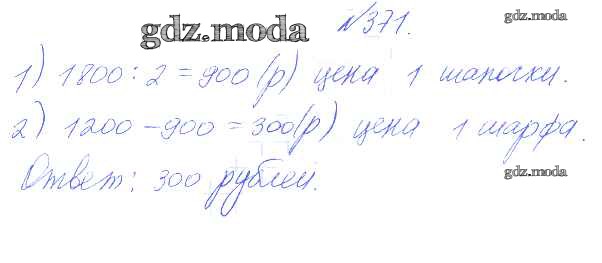 gdz.moda №371. gdz.moda
1) 1800 : 2 = 900 (р) цена 1 шапочки.
2) 1200 - 900 = 300 (р) цена 1 шарфа.
Ответ: 300 рублей. gdz.moda
gdz.moda